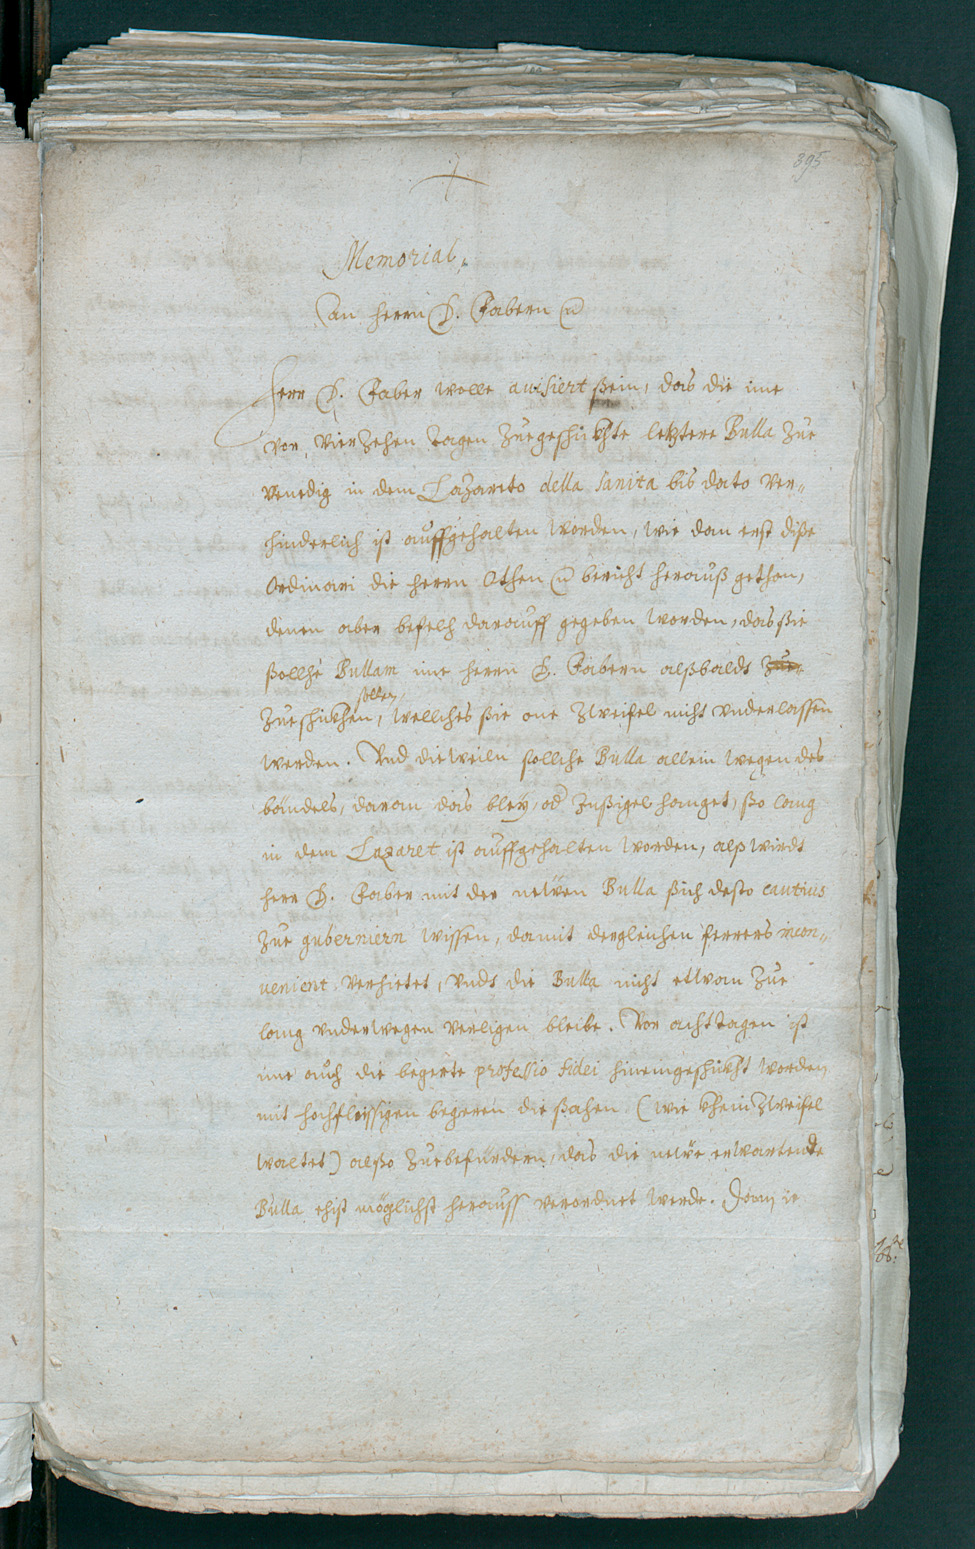 395
Memorial,
An herrn D. Fabern
Herr D. Faber wolle auisiert sein, das die ime
vor, vierzehen tagen zuegeschickhte letztere Bulla zue
Venedig in dem Lazareto della sanita bis dato ver„
hinderlich ist auffgehalten worden, wie dan erst dise
ordinari die herrn Othen bericht herauß gethon,
denen aber befelch darauff gegeben worden, das sie
solche Bullam ime herrn D. Fabern alßbaldt zue
sollen
zueschickhen, wellches sie one zweifel nicht vnderlassen
werden. Vnd dieweiln solliche Bulla allein wegen des
bändels, daran das bley, od Insigel hanget, so lang
in dem Lazaret ist auffgehalten worden, alß wirdt
herr D. Faber mit der newen Bulla sich desto cautius
zue guberniern wissen, damit dergleichen ferrers incon„
uenient verhietet, vnd die Bulla nicht etwan zue
lang vnderwegen verligen bleibe. Vor acht tagen ist
ime auch die begerte professio fidei hineingeschickht worden
mit hochfleissigen begeren die sachen (wie khein zweifel
waltet) also zuebefürdern, das die newe erwartende
Bulla ehist möglichst herauss verordnet werde. Dan ie